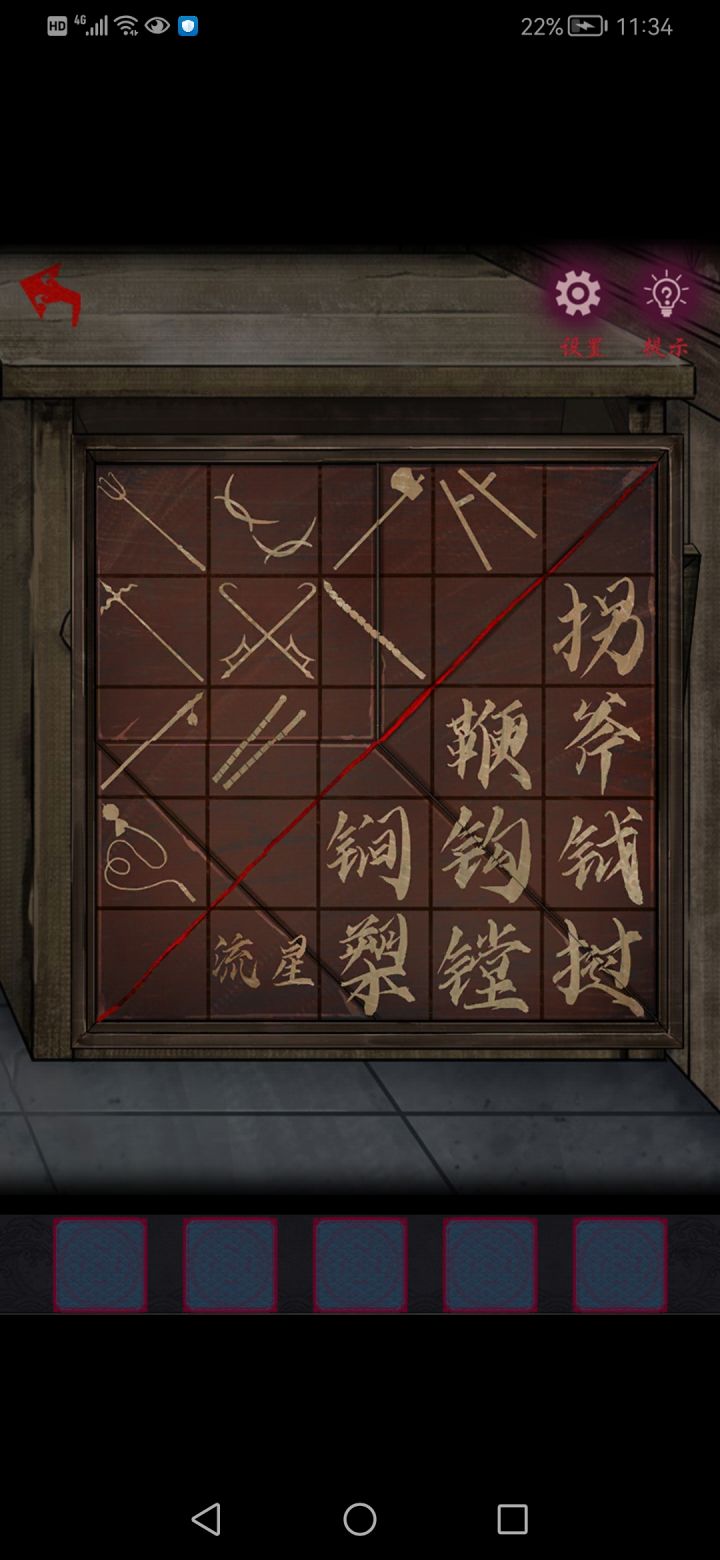 HD 4G 22% 11:34
设置 提示
拐
鞭 斧
锏 钩 钺
流星 槊 镗 挝